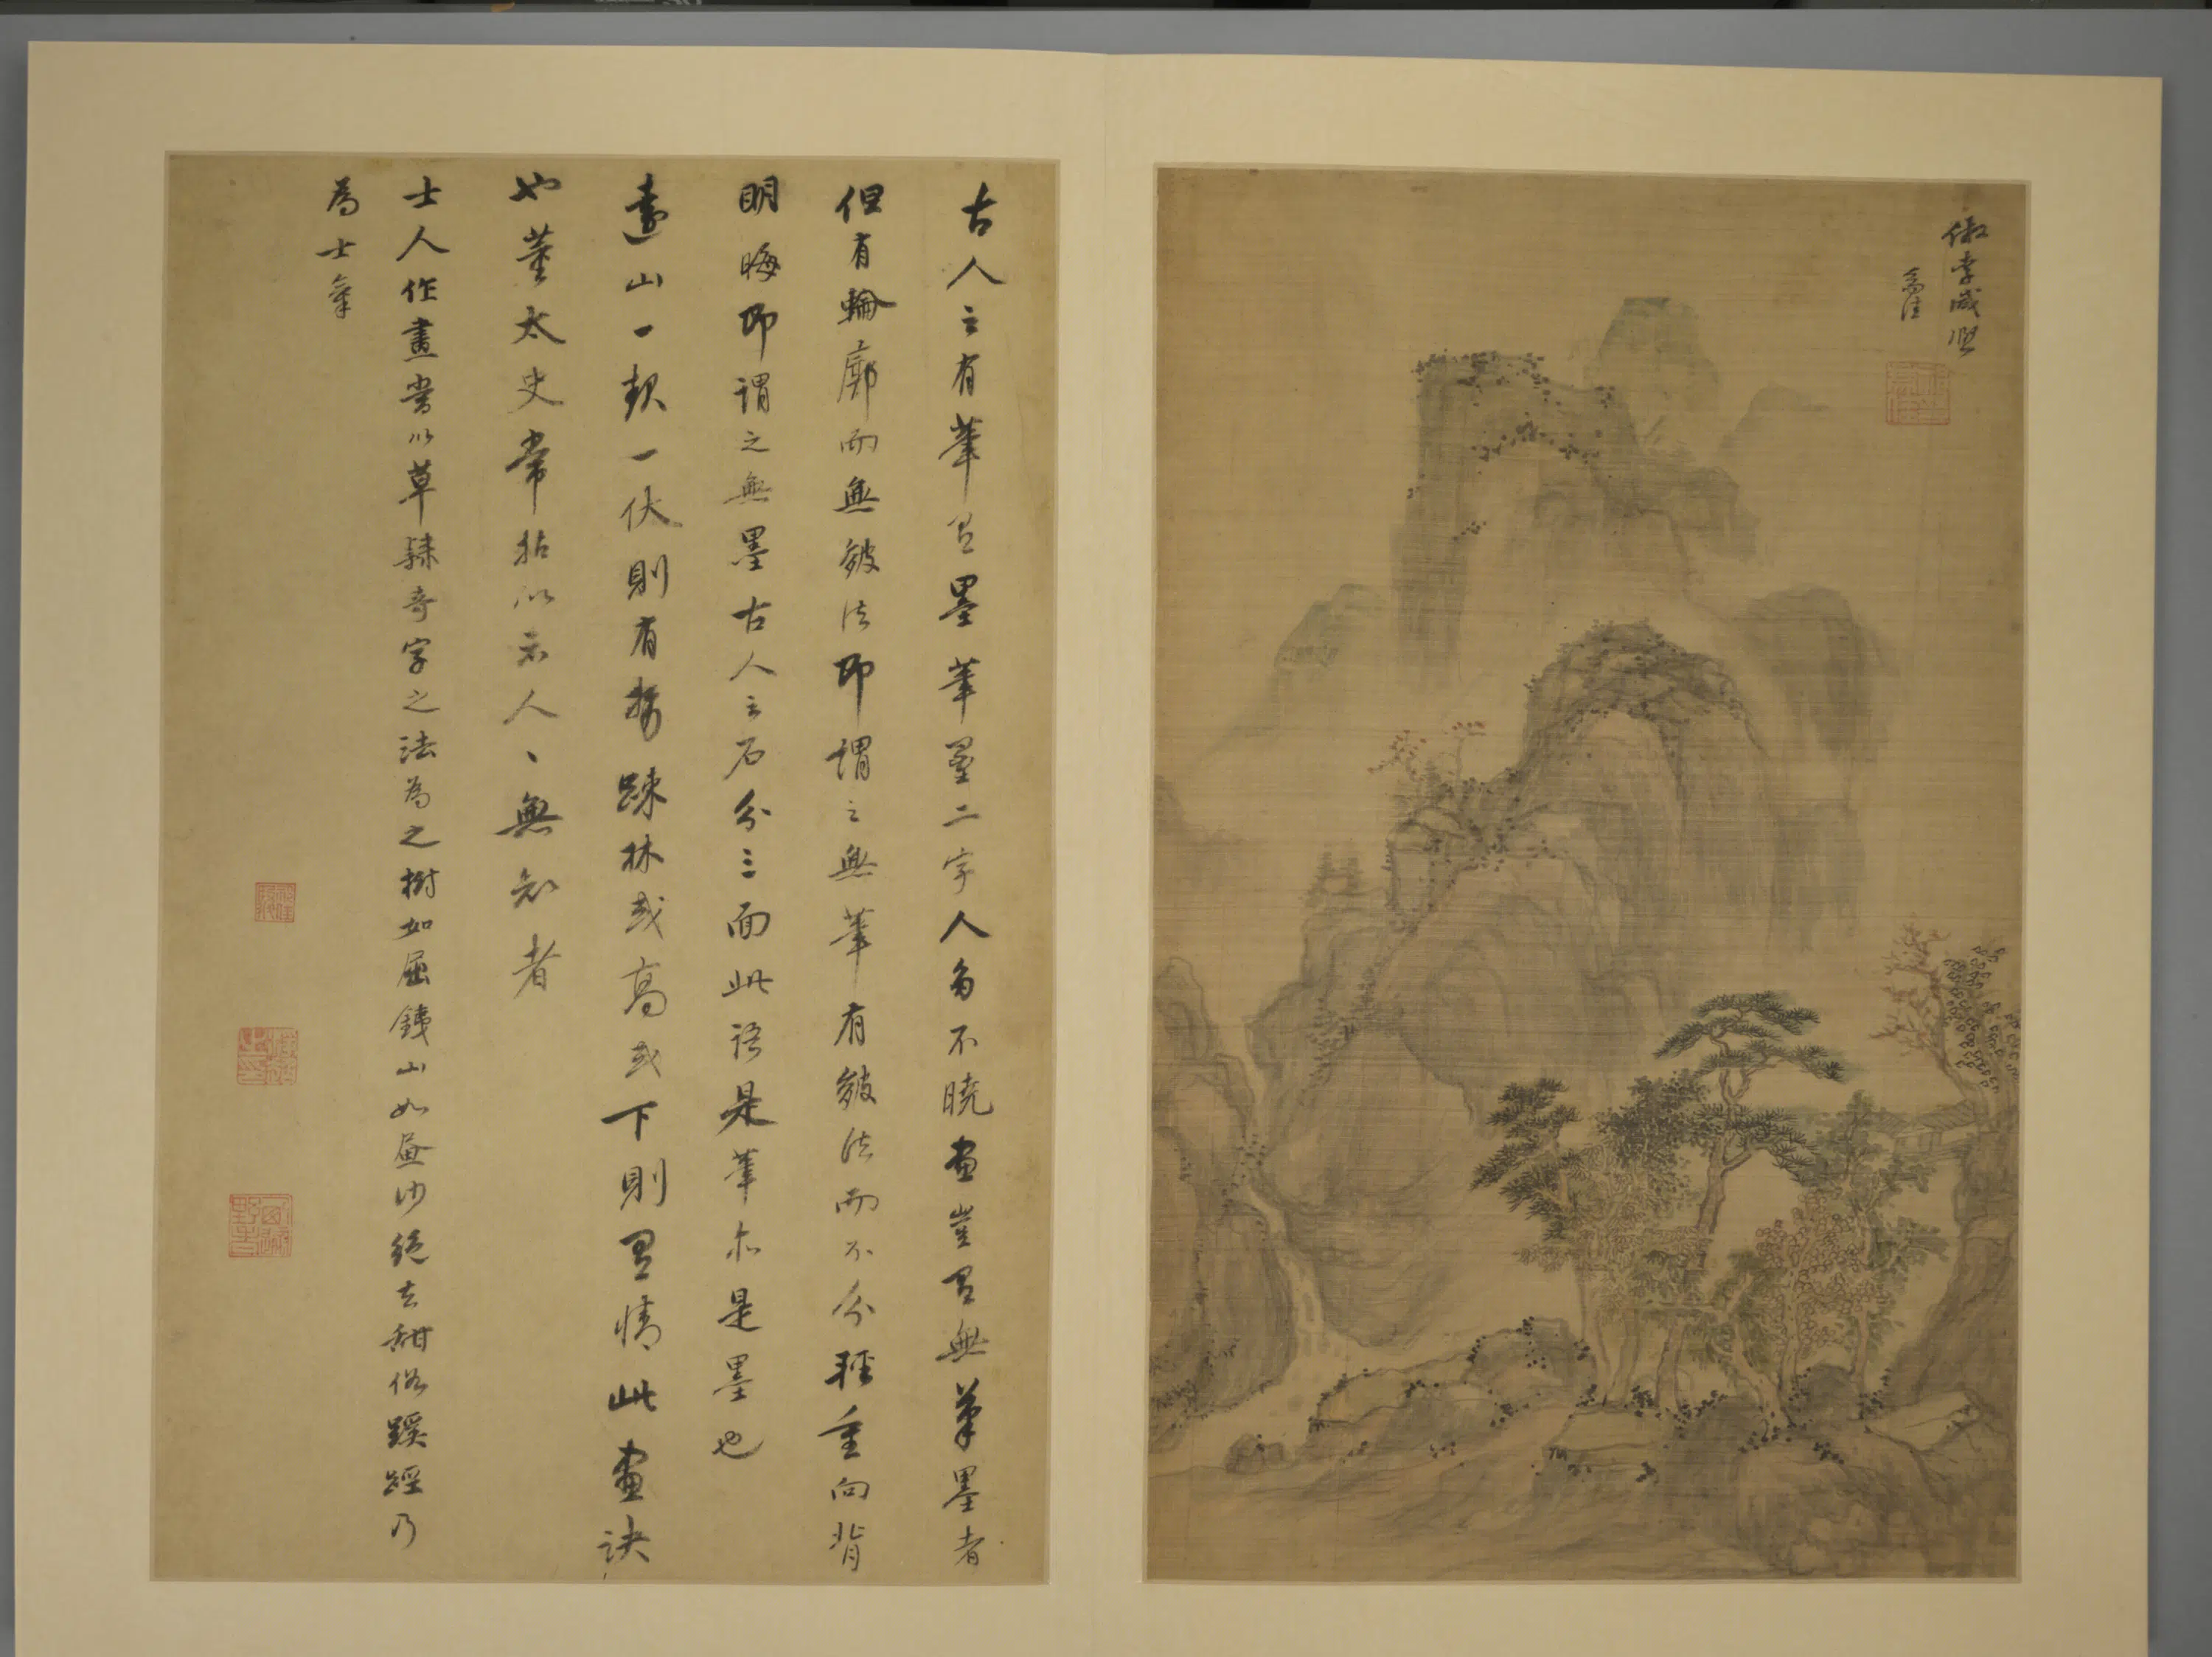 倣李咸熙
古人云有筆有墨筆墨二字人多不曉畫豈有無筆墨者
但有輪廓而無皴法即謂之無筆有皴法而不分輕重向背
明晦即謂之無墨古人云石分三面此語是筆亦是墨也
遠山一起一伏則有勢踈林或高或下則有情此畫訣
也董太史常拈以示人、無知者
士人作畫當以草隸奇字之法為之樹如屈鐵山如畫沙絕去甜俗蹊踁乃
為士氣